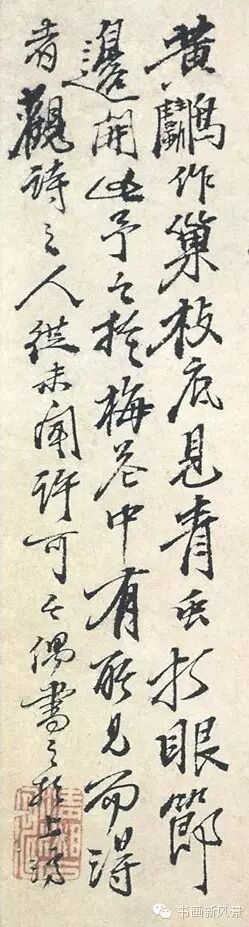 黄鸝作巢枝底見青虫打眼節
邊開此予之於梅花中有所見而得
者觀詩之人從未聞許可偶書之於上
书画新风景